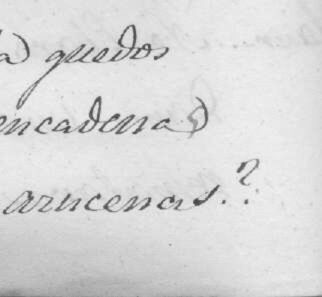 a) quedos
encadena)
arucenas.?